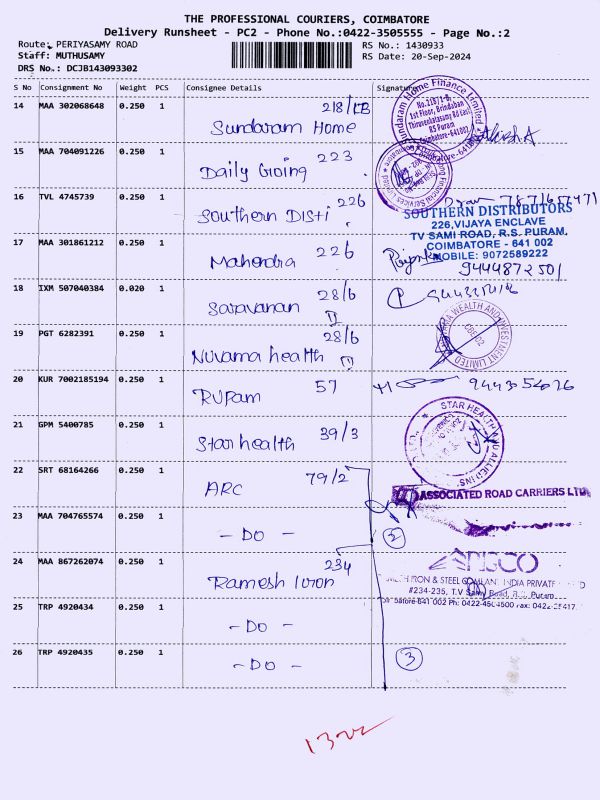 THE PROFESSIONAL COURIERS, COIMBATORE
Delivery Runsheet - PC2 - Phone No.:0422-3505555 - Page No.:2
Route: PERIYASAMY ROAD
RS No.: 1430933
Staff: MUTHUSAMY
RS Date: 20-Sep-2024
DRS No.: DCJB143093302
S No Consignment No Weight PCS Consignee Details Signature
14 MAA 302068648 0.250 1 218/
Sundaram Home
Sundaram Home Finance Limited
No.218/1-B,
1st Floor, Brindaban
Thiruvenkatasamy Rd East
RS Puram
Coimbatore-641002
15 MAA 704091226 0.250 1 Daily Going 223
16 TVL 4745739 0.250 1 Southern Disti 226
SOUTHERN DISTRIBUTORS
226,VIJAYA ENCLAVE
TV SAMI ROAD, R.S. PURAM,
COIMBATORE - 641 002
MOBILE: 9072589222
17 MAA 301861212 0.250 1 Mahendra 226
Priyanka 9444872501
18 IXM 507040384 0.020 1 Saravanan 28/6
19 PGT 6282391 0.250 1 Nuvama health 28/6
WEALTH AND INVESTMENT LIMITED
CBE-02
20 KUR 7002185194 0.250 1 Rupam 57
9443054026
21 GPM 5400785 0.250 1 Star health 39/3
STAR HEALTH AND ALLIED INS.
22 SRT 68164266 0.250 1 ARC 79/2
ASSOCIATED ROAD CARRIERS LTD
23 MAA 704765574 0.250 1 - DO - 2
24 MAA 867262074 0.250 1 Ramesh Iron 234
IRON & STEEL COMPANY INDIA PRIVATE
#234-235, T.V Samy Road, R.S. Puram
25 TRP 4920434 0.250 1 - DO -
26 TRP 4920435 0.250 1 - DO - 3